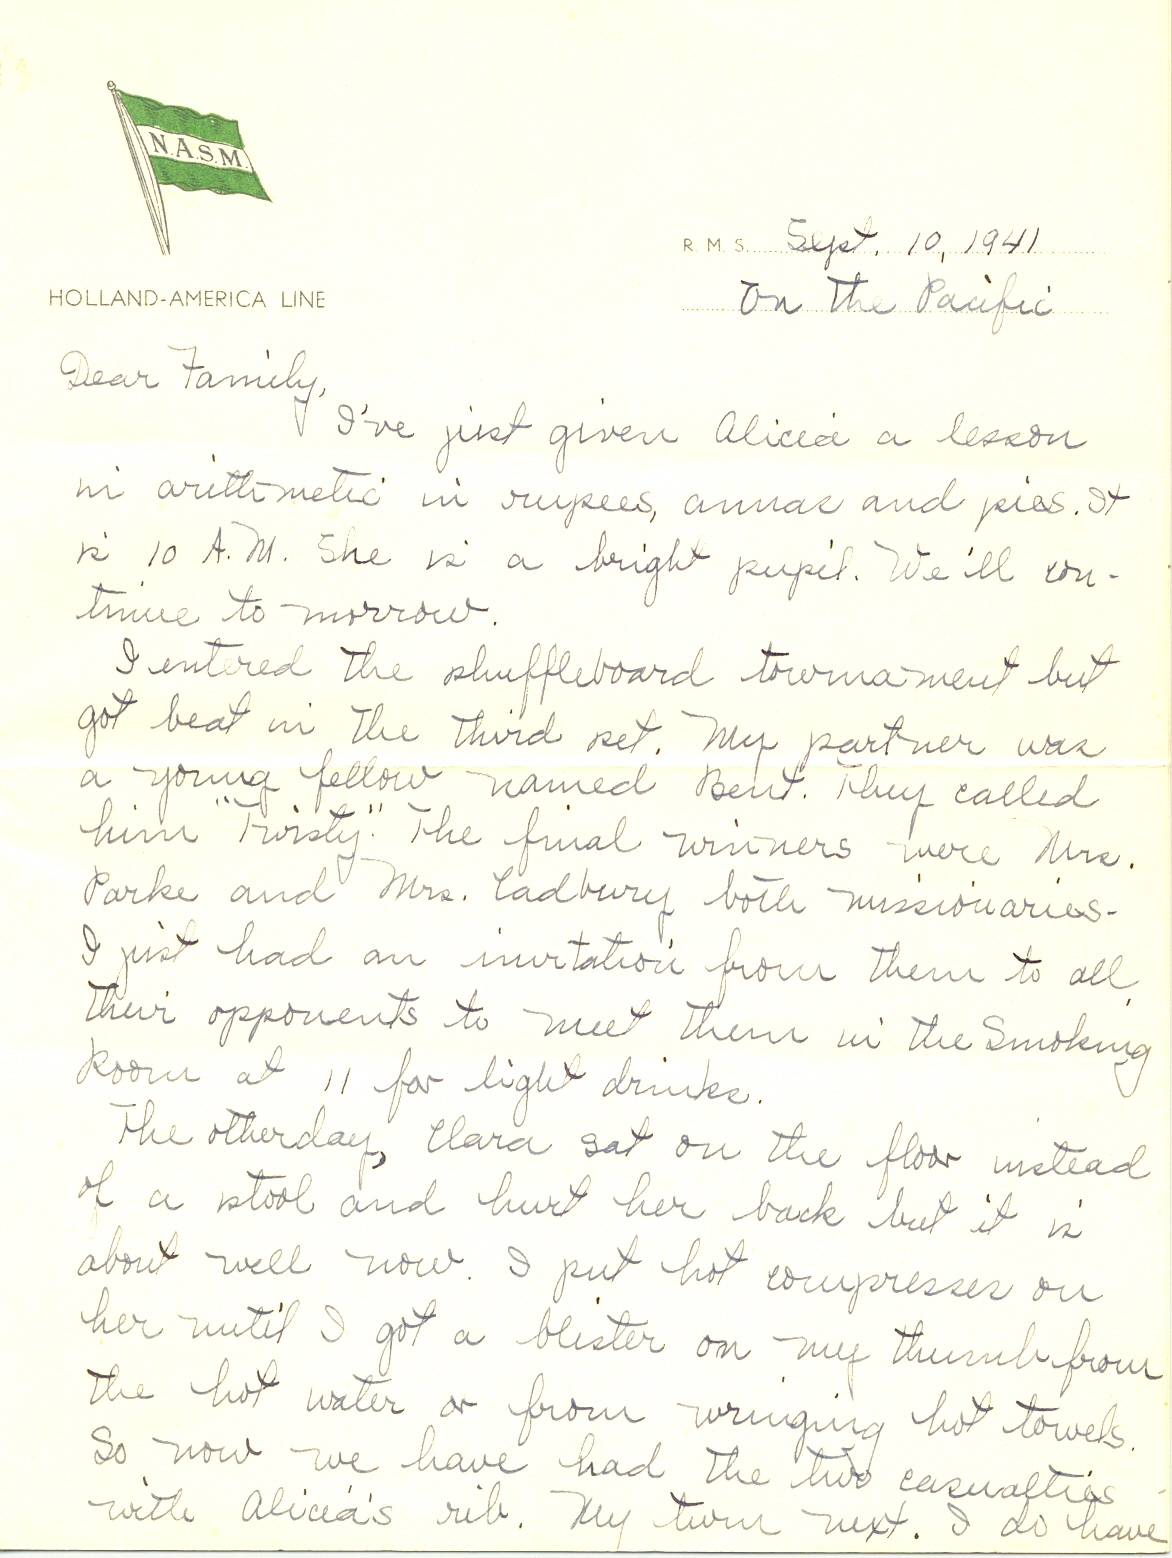 N.A.S.M.
HOLLAND-AMERICA LINE
R. M. S. Sept. 10, 1941
On the Pacific
Dear Family,
I've just given Alicia a lesson
in arithmetic in rupees, annas and pies. It
is 10 A.M. She is a bright pupil. We'll con-
tinue to morrow.
I entered the shuffleboard tournament but
got beat in the third set. My partner was
a young fellow named Bent. They called
him "Twisty". The final winners were Mrs.
Parke and Mrs. Cadbury both missionaries-
I just had an invitation from them to all
their opponents to meet them in the Smoking
Room at 11 for light drinks.
The otherday, Clara sat on the floor instead
of a stool and hurt her back but it is
about well now. I put hot compresses on
her until I got a blister on my thumb from
the hot water or from wringing hot towels.
So now we have had the two casualties -
with Alicia's rib. My turn next. I do have